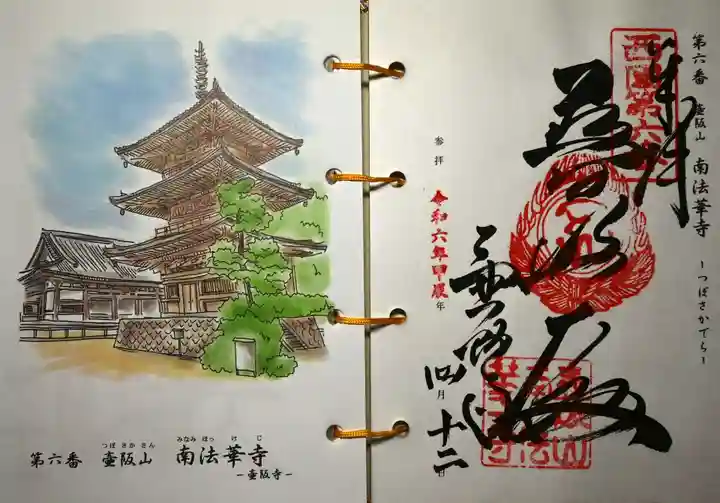 つぼ さか さん
みなみ ほっ け じ
第六番 壷阪山 南法華寺
－壷阪寺－
第六番 壷阪山 南法華寺 －つぼさかでら－
西国第六
奉拝
普照殿
壷阪寺
参拝
令和六年甲辰年
四月十二日